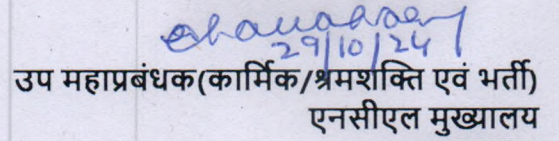 29/10/24
उप महाप्रबंधक(कार्मिक/श्रमशक्ति एवं भर्ती)
एनसीएल मुख्यालय